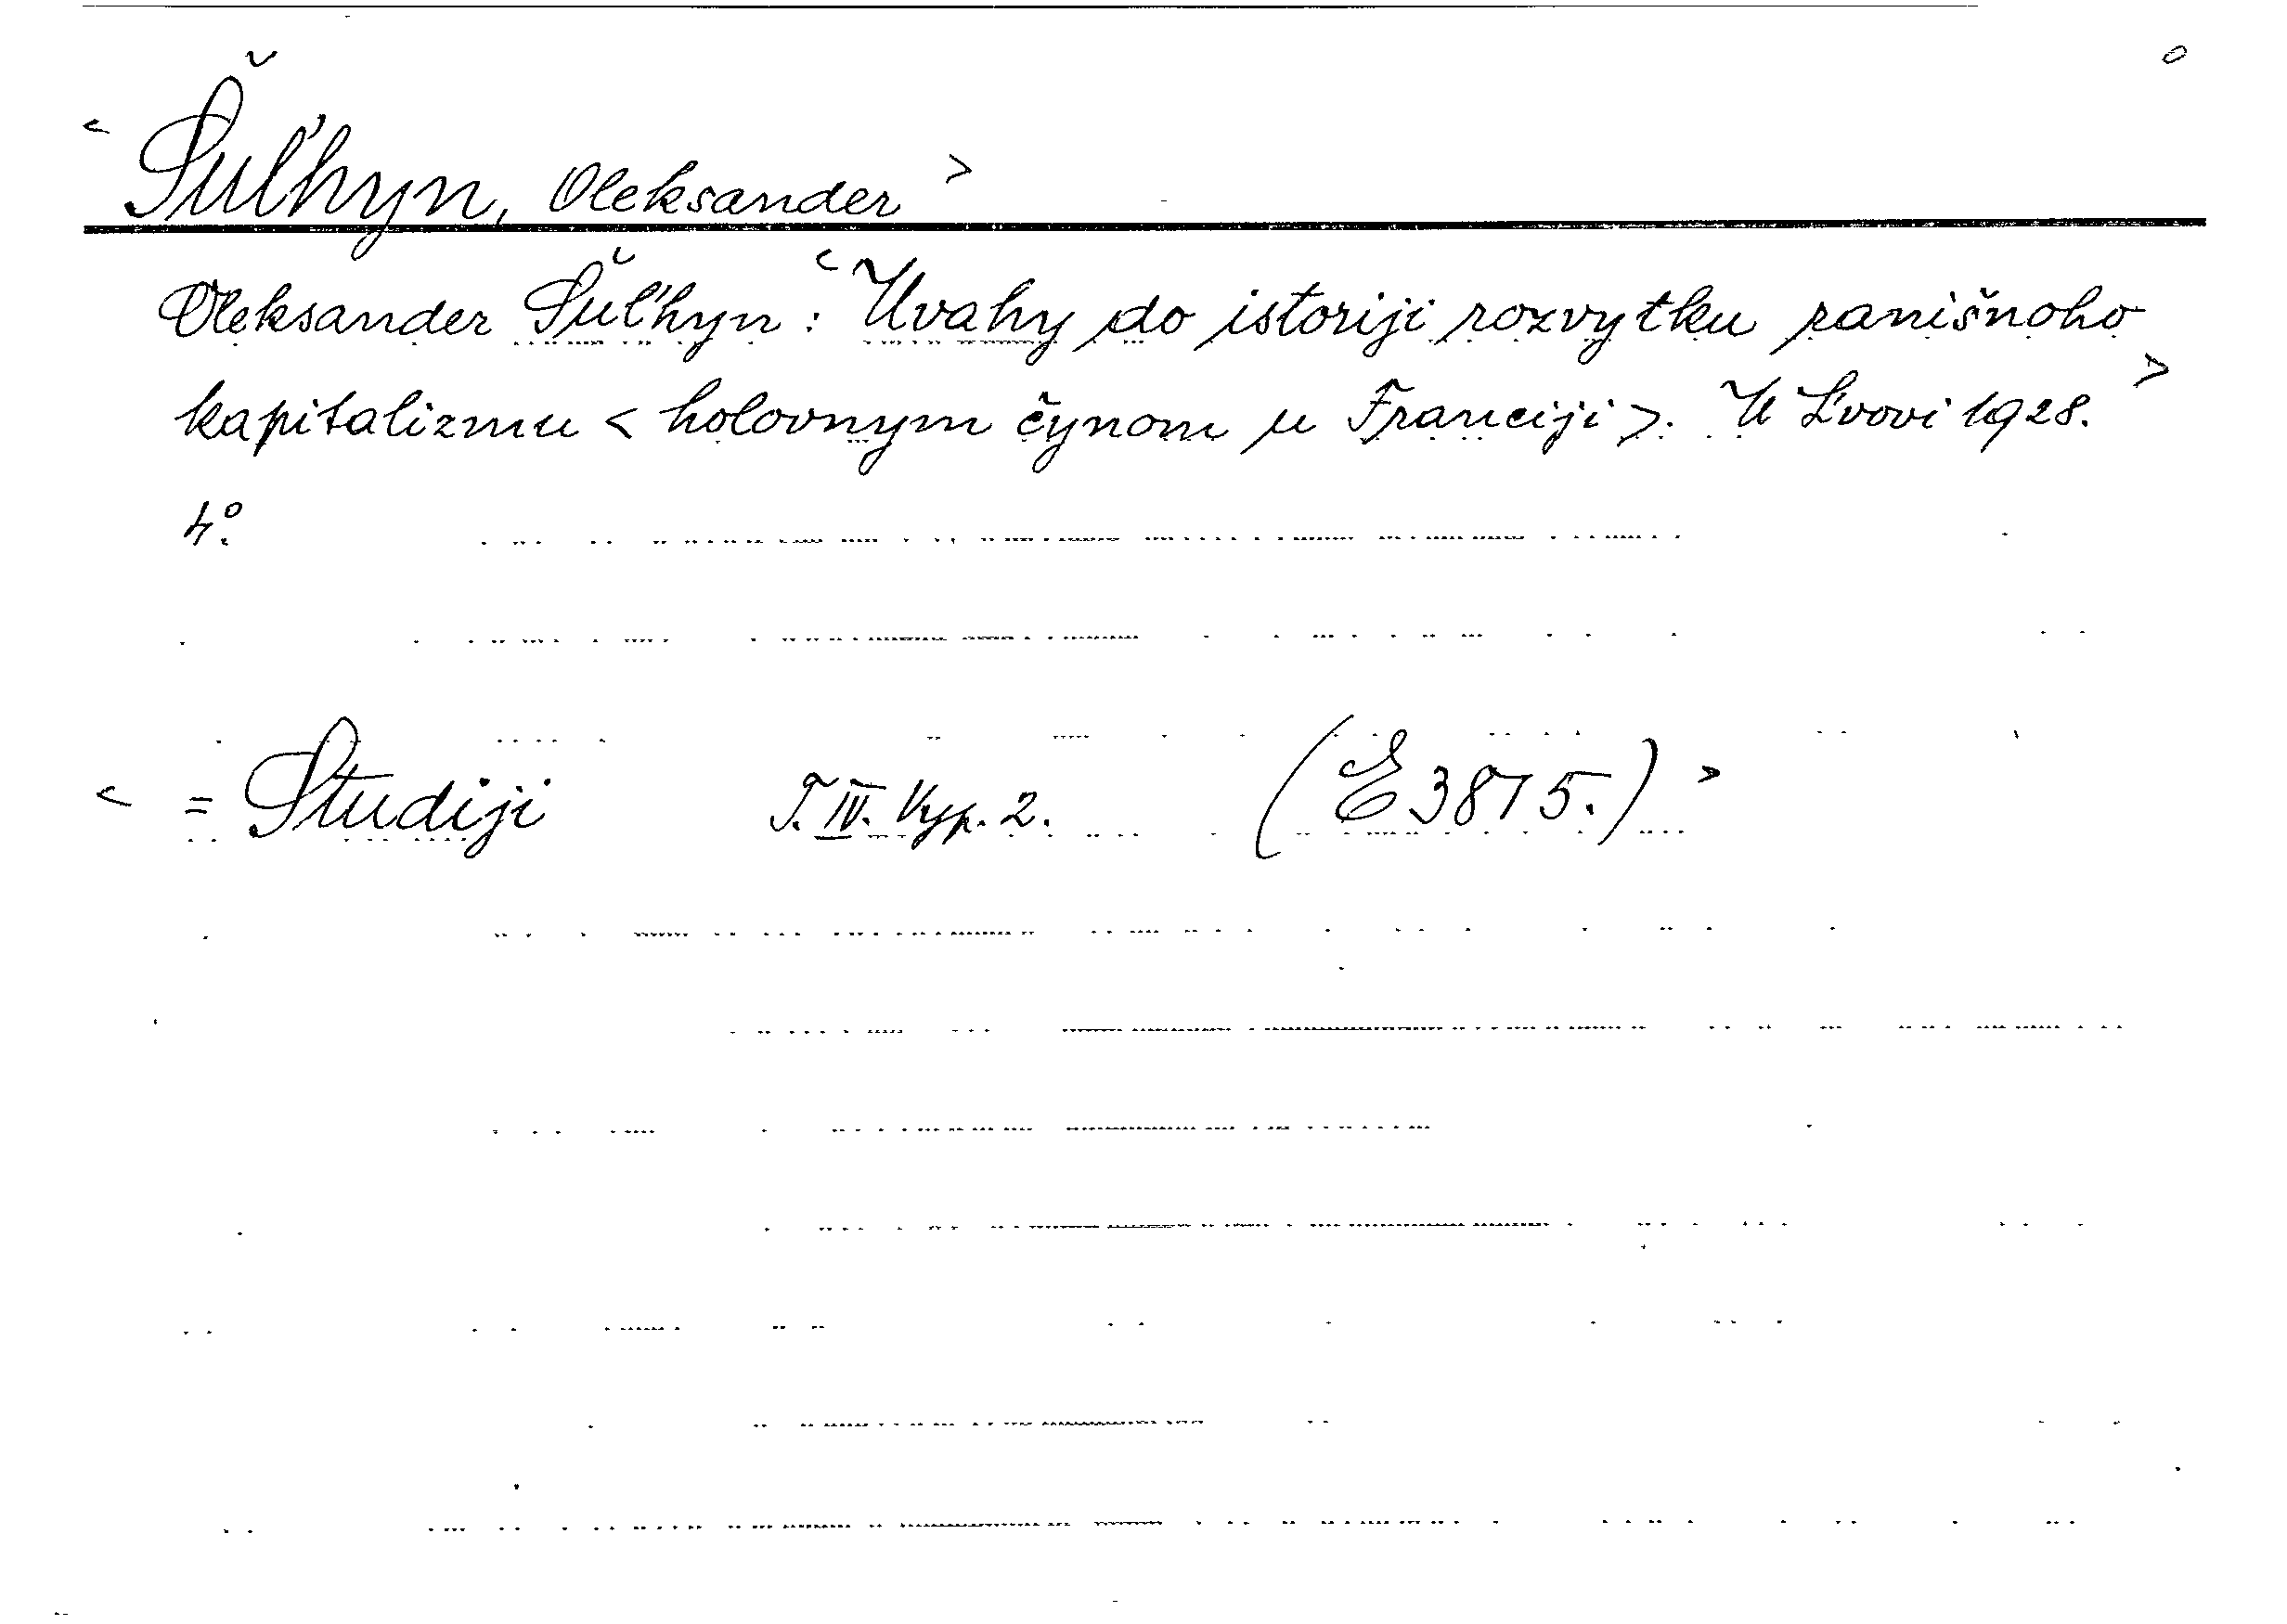 < Šul'hyn, Oleksander >
Oleksander Šul'hyn: < Uvahy do istoriji rozvytku ranišnoho
kapitalizmu < holovnym čynom u Franciji >. U L'vovi 1928. >
4°.
< = Studiji T. IV. Vyp. 2. (E 3875.) >